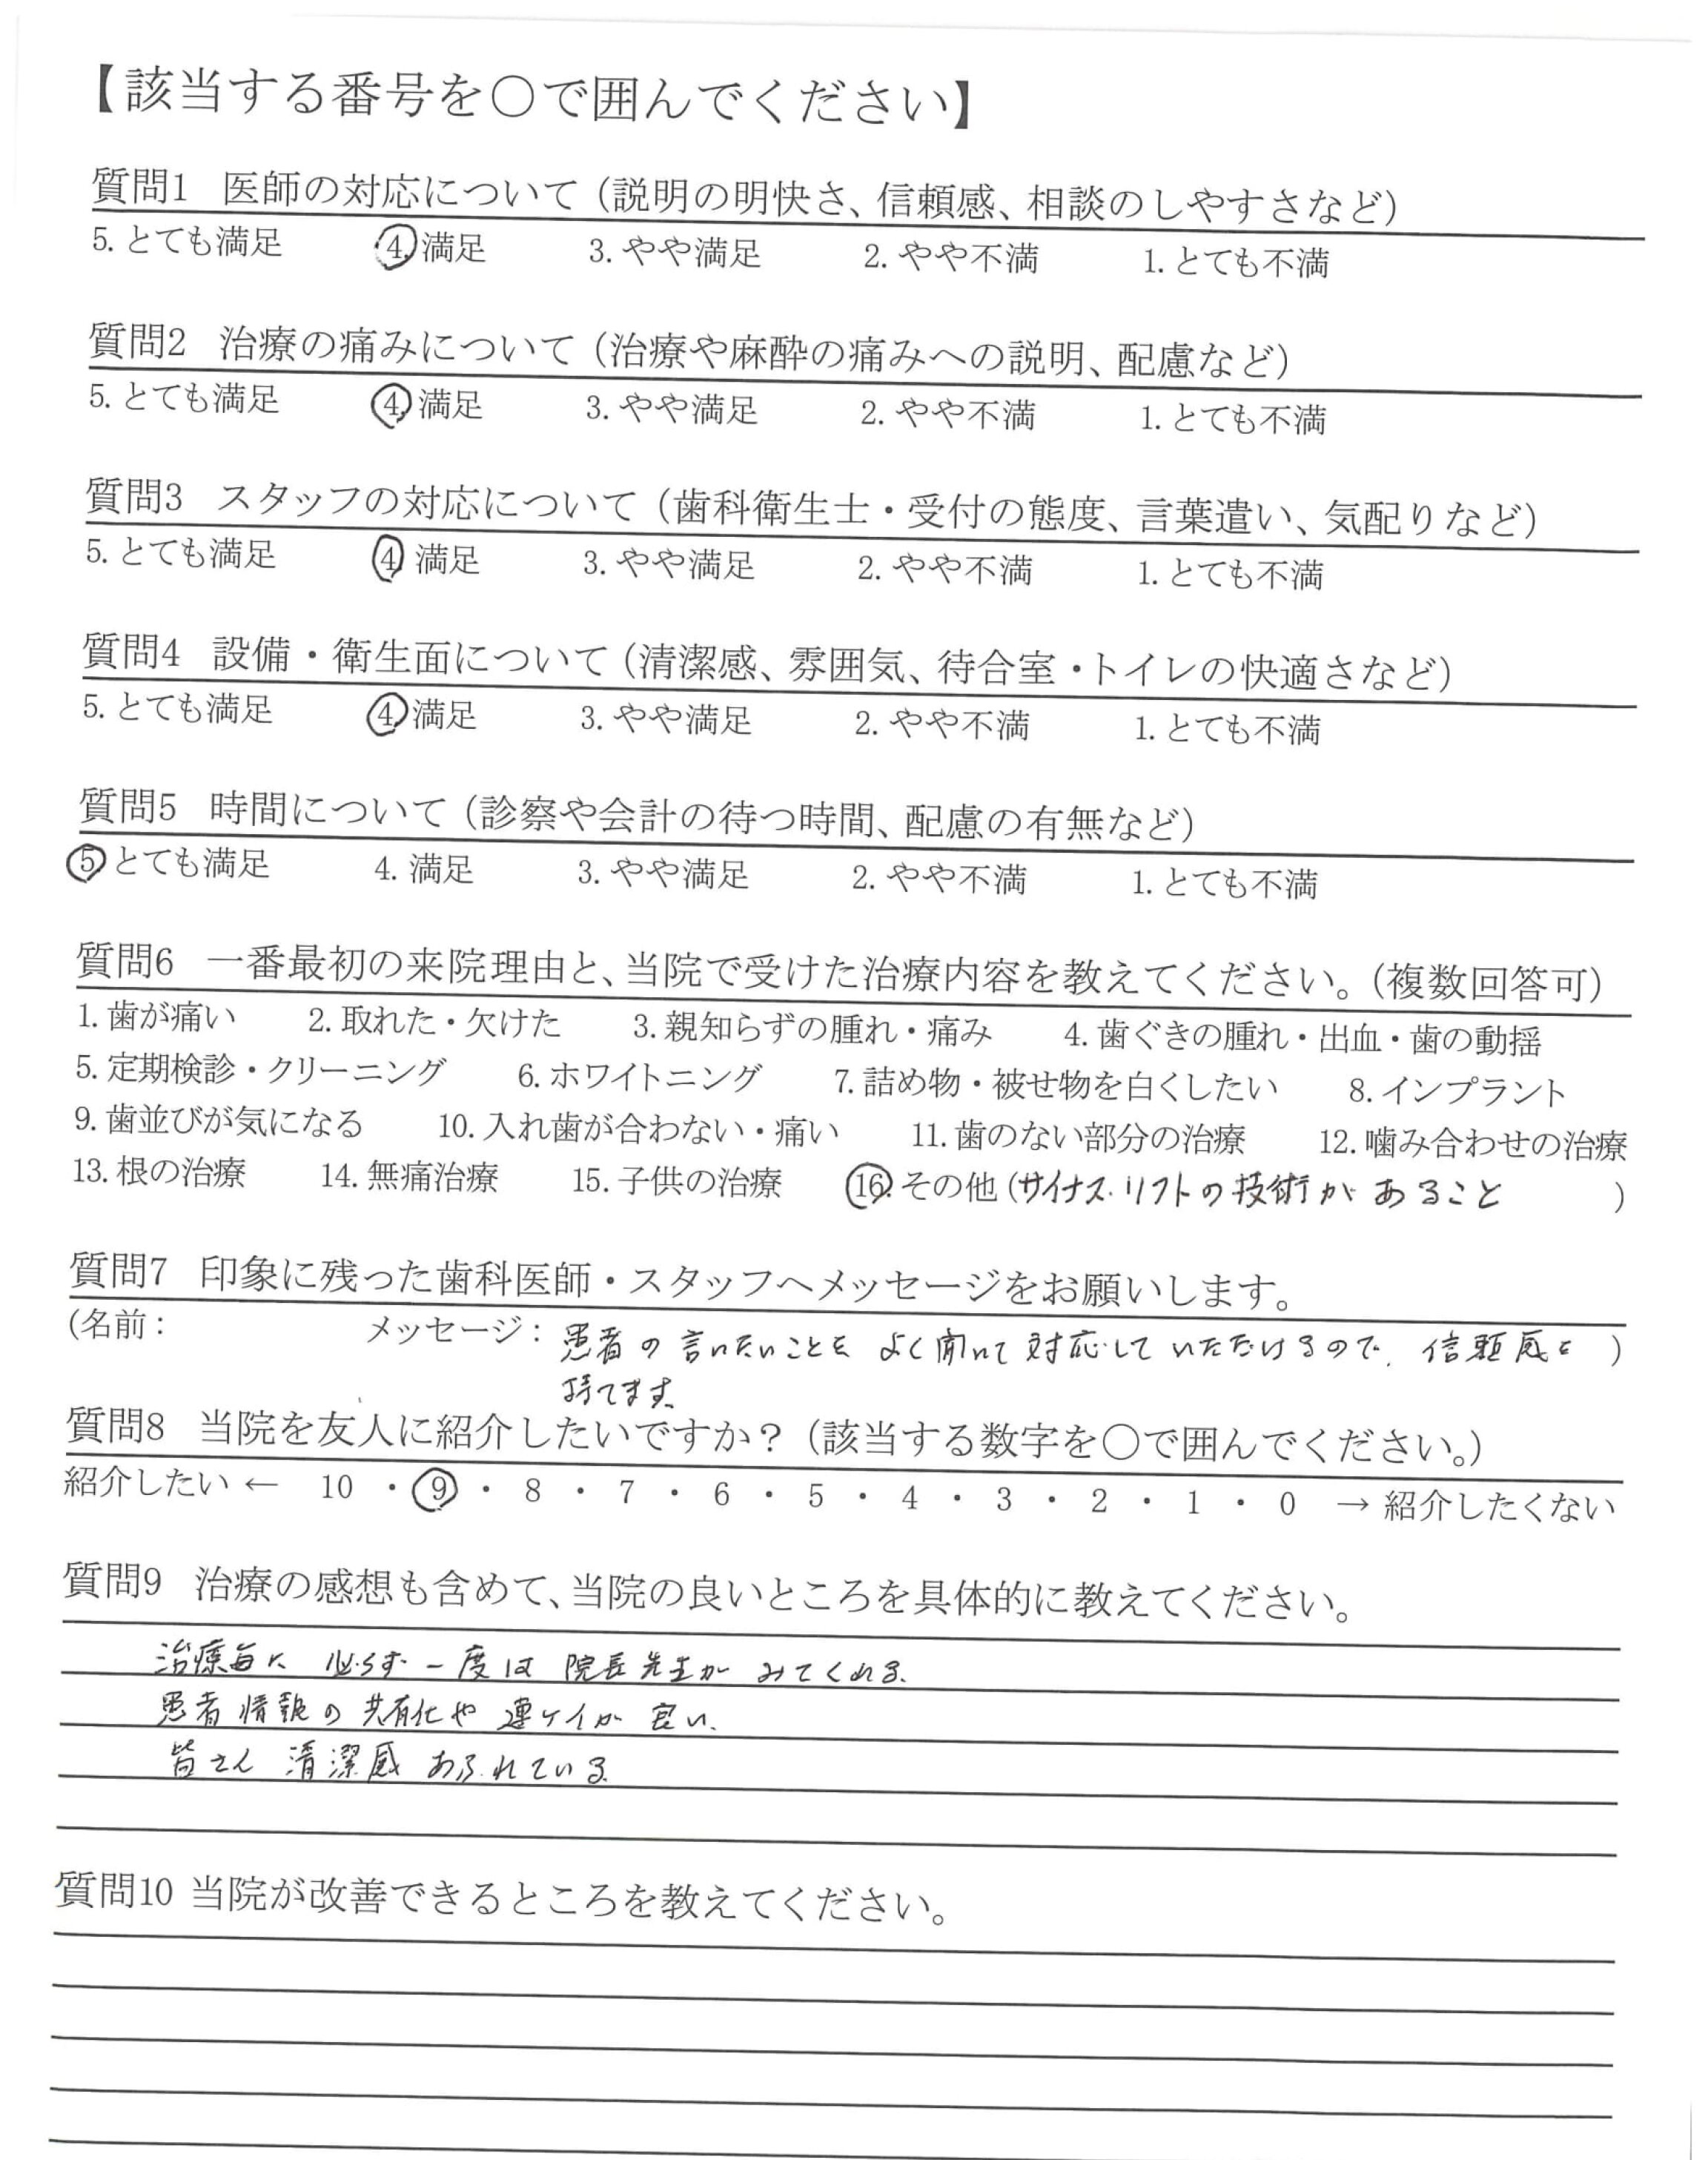 【該当する番号を○で囲んでください】
質問1 医師の対応について（説明の明快さ、信頼感、相談のしやすさなど）
5. とても満足 4. 満足 3. やや満足 2. やや不満 1. とても不満
質問2 治療の痛みについて（治療や麻酔の痛みへの説明、配慮など）
5. とても満足 4. 満足 3. やや満足 2. やや不満 1. とても不満
質問3 スタッフの対応について（歯科衛生士・受付の態度、言葉遣い、気配りなど）
5. とても満足 4 満足 3. やや満足 2. やや不満 1. とても不満
質問4 設備・衛生面について（清潔感、雰囲気、待合室・トイレの快適さなど）
5. とても満足 4. 満足 3. やや満足 2. やや不満 1. とても不満
質問5 時間について（診察や会計の待つ時間、配慮の有無など）
5 とても満足 4. 満足 3. やや満足 2. やや不満 1. とても不満
質問6 一番最初の来院理由と、当院で受けた治療内容を教えてください。（複数回答可）
1. 歯が痛い 2. 取れた・欠けた 3. 親知らずの腫れ・痛み 4. 歯ぐきの腫れ・出血・歯の動揺
5. 定期検診・クリーニング 6. ホワイトニング 7. 詰め物・被せ物を白くしたい 8. インプラント
9. 歯並びが気になる 10. 入れ歯が合わない・痛い 11. 歯のない部分の治療 12. 噛み合わせの治療
13. 根の治療 14. 無痛治療 15. 子供の治療 16. その他（サイナスリフトの技術があること ）
質問7 印象に残った歯科医師・スタッフへメッセージをお願いします。
（名前： メッセージ：患者の言いたいことをよく聞いて対応していただけるので、信頼感を ）
持てます。
質問8 当院を友人に紹介したいですか？（該当する数字を○で囲んでください。）
紹介したい ← 10 ・ 9 ・ 8 ・ 7 ・ 6 ・ 5 ・ 4 ・ 3 ・ 2 ・ 1 ・ 0 → 紹介したくない
質問9 治療の感想も含めて、当院の良いところを具体的に教えてください。
治療毎に必らず一度は院長先生がみてくれる。
患者情報の共有化や連ケイが良い。
皆さん清潔感あふれている。
質問10 当院が改善できるところを教えてください。